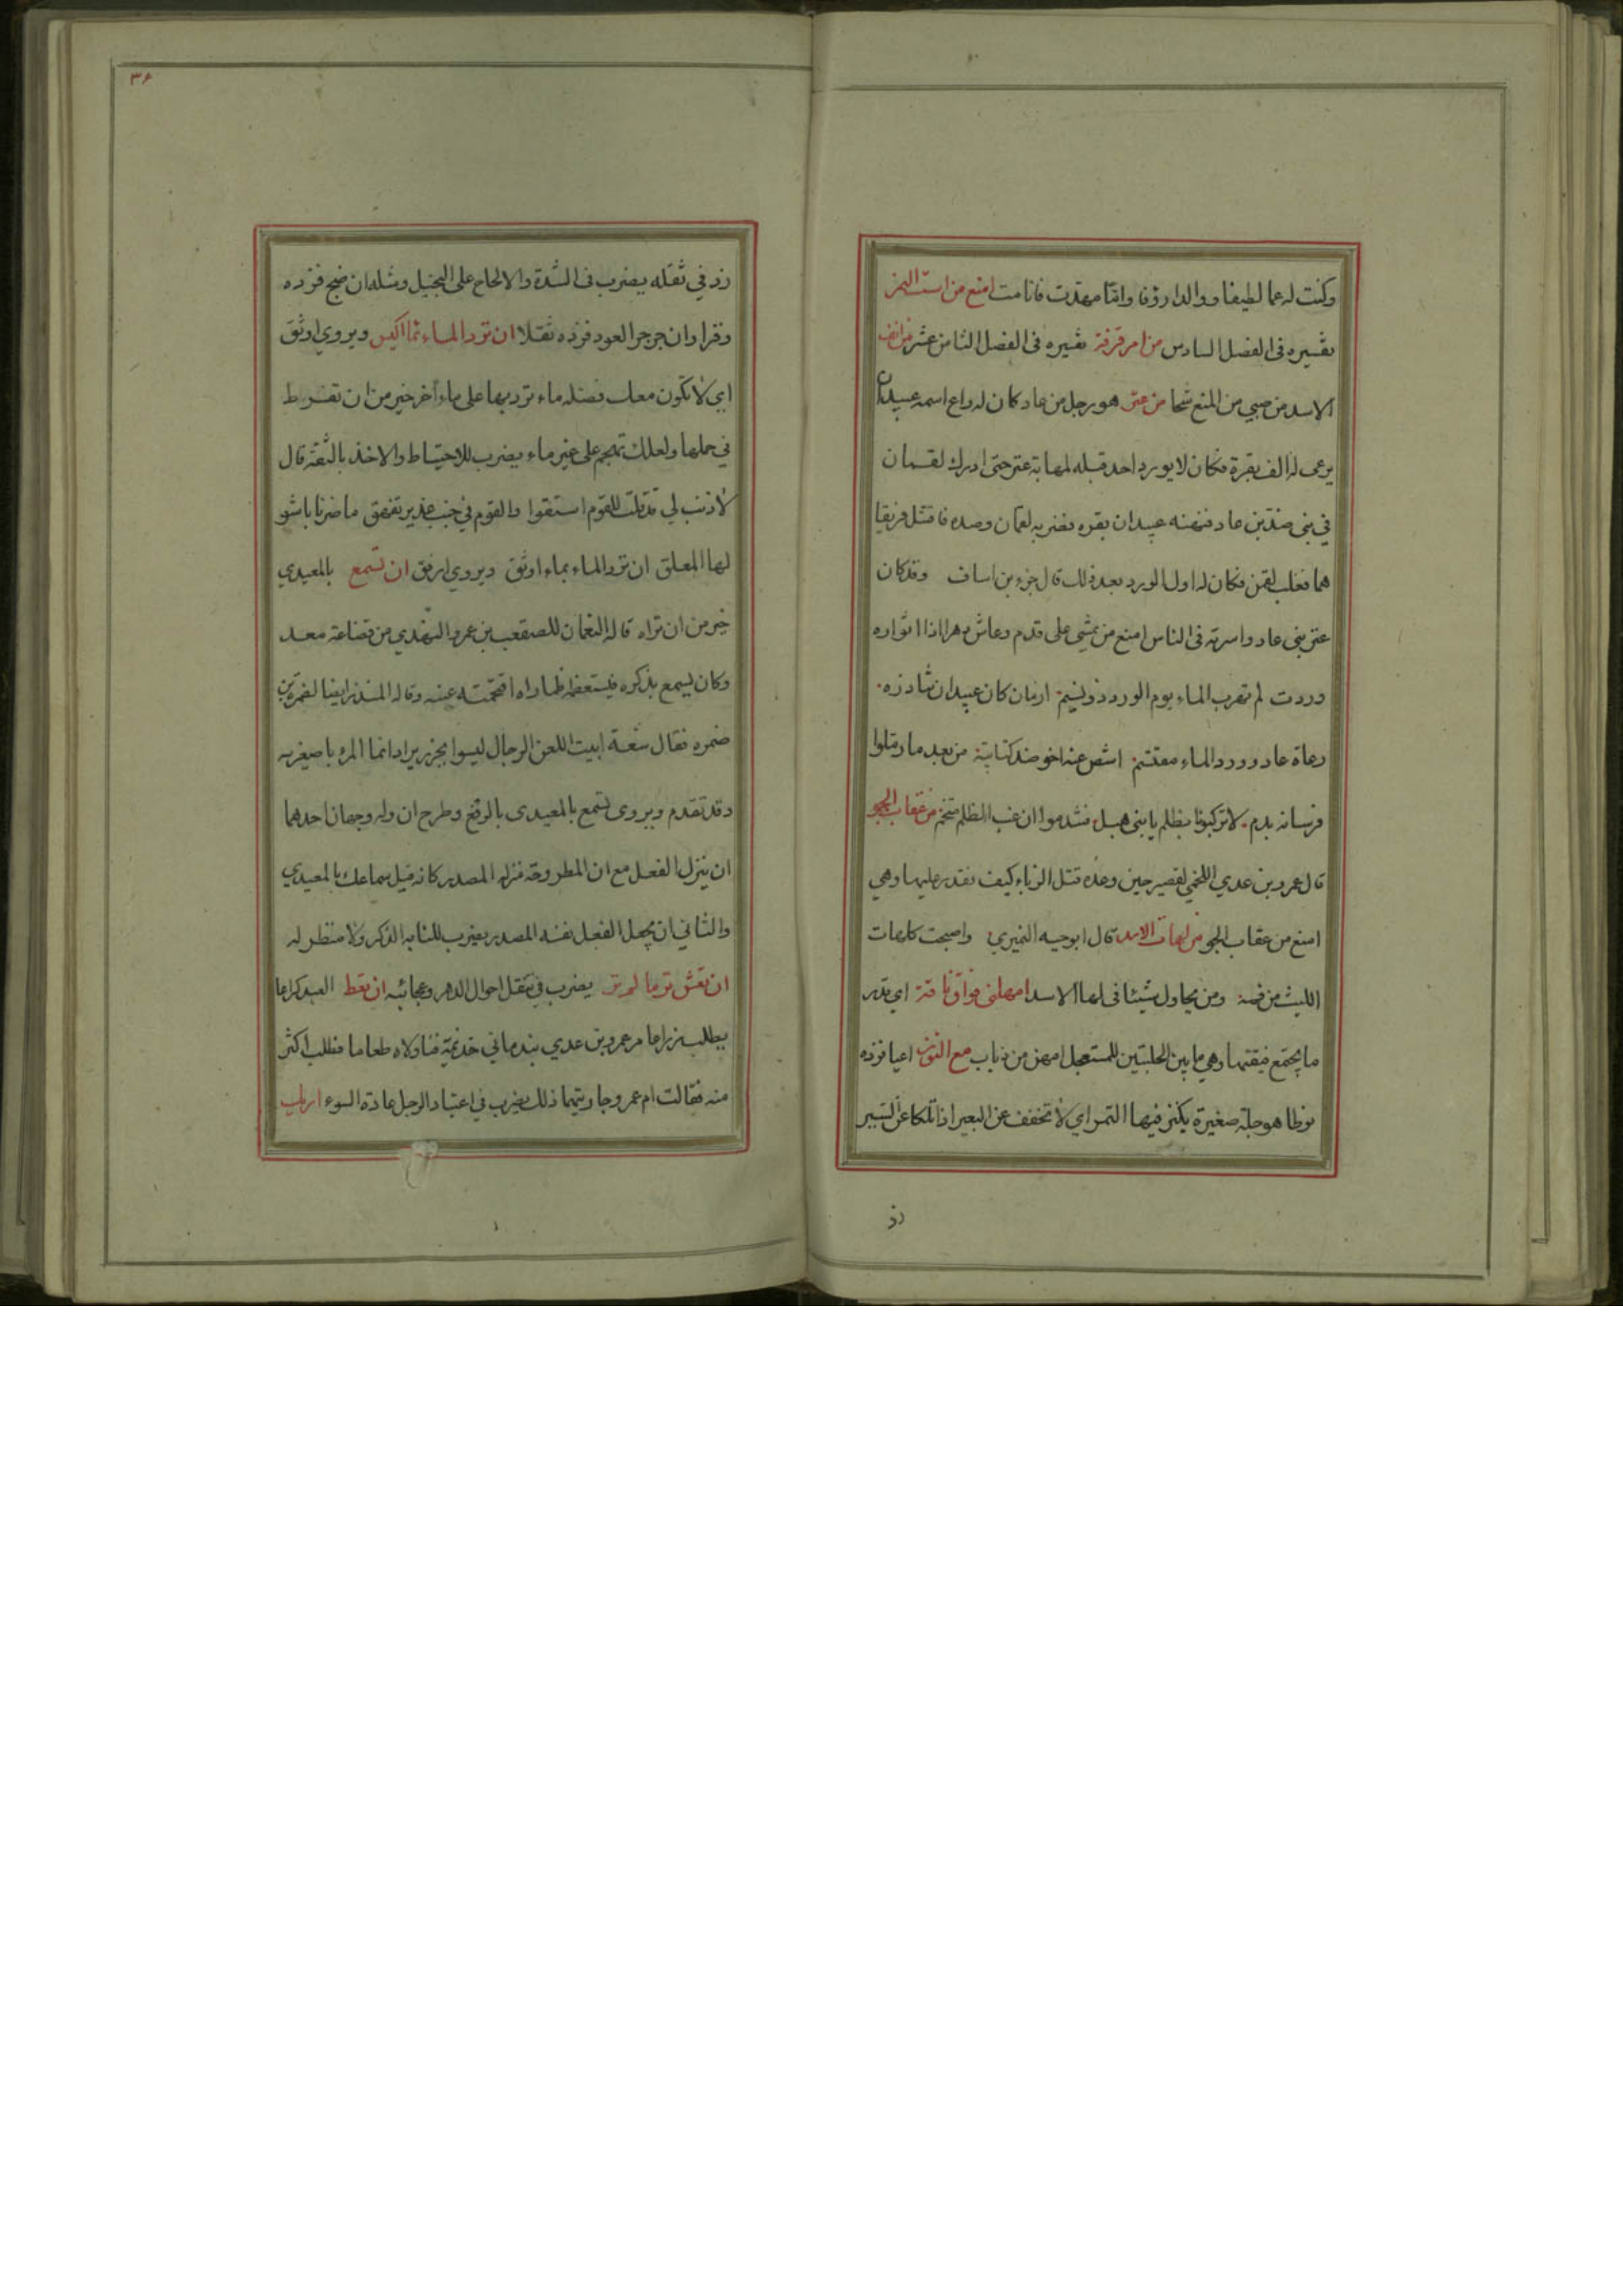 وكنت له عما لطيفا ووالدا رؤفا واما مهدت فانامت امنع من است النمر
تفسيره فى الفصل السادس من ام قرفة تفسيره فى الفصل الثامن عشر من انف
الاسد من صبي من المنع شحا من عنز هو رجل من عاد كان له راع اسمه عبيدان
يرعى له الف بقرة فكان لا يورد احد قبله لمهابة عنز حتى ادرك لقمان
في بنى ضد بن عاد فنهنه عبيدان بقره فضربه لقمان وصده فاقتتل فريقا
هما فغلب لقمن فكان له اول الورد بعد ذلك قال جزء بن اساف وقد كان
عنز بنى عاد واسرته فى الناس امنع من يمشي على قدم وعاش دهرا اذا اثواره
وردت لم تقرب الماء يوم الورد ذو نسم ازمان كان عبيدان تناذره
رعاة عاد وورد الماء مقتسم اشص عنه اخو ضد كتائبه من بعد ما رملوا
فرسانه بدم لا تركبونا بظلم يا بنى هبل فتندموا ان غب الظلم متخم من عقاب الجو
قال عمرو بن عدي اللخمي لقصير حين وعده قتل الزباء كيف تقدر عليها وهي
امنع من عقاب الجو من لهات الاسد قال ابو حيه النميري واصبحت كلهات
الليث من فمه ومن يحاول شيئا فى لها الاسد امهلنى فواق ناقة اي قدر
ما يجتمع فيقتها وهي ما بين الحلبتين للمستعجل امهن من ذباب مع النون اعيا فزده
نوطا هو جلة صغيرة يكنز فيها التمر اي لا تخفف عن البعير اذا تلكا عن السير
زد
٣۶
زد في ثقله يضرب فى الشدة والالحاح على البخيل ومثله ان ضج فزده
وقرا وان جرجر العود فزده ثقلا ان ترد الماء بماء اكيس ويروي اوثق
اي لان تكون معك فضله ماء ترد بها على ماء آخر خير من ان تفرط
في حملها ولعلك تهجم على غير ماء يضرب للاحتياط والاخذ بالثقة قال
لا ذنب لي قد قلت للقوم استقوا والقوم في جنب غدير تفهق ما ضرنا باشو
لها المعلق ان ترد الماء بماء اوثق ويروي ارفق ان تسمع بالمعيدي
خير من ان تراه قاله النعمان للصقعب بن عمرو النهدي من قضاعة معد
وكان يسمع بذكره فيستعظمه فلما راه اقتحمته عينه وقاله المنذر ايضا لضمرة بن
ضمره فقال شقة ابيت اللعن الرجال ليسوا بجزر يراد انما المرء باصغريه
وقد تقدم ويروى تسمع بالمعيدى بالرفع وطرح ان وله وجهان احدهما
ان ينزل الفعل مع ان المطروحة منزله المصدر كانه قيل سماعك بالمعيدي
والثاني ان يجعل الفعل نفسه المصدر يضرب للنابه الذكر ولا منظر له
ان تعش تر ما لم تر يضرب في تنقل احوال الدهر وعجائبه ان تعط العبد كراعا
يطلب ذراعا مر عمرو بن عدي بندماني جذيمة فناولاه طعاما فطلب اكثر
منه فقالت ام عمرو جاريتهما ذلك يضرب في اعتياد الرجل عادة السوء